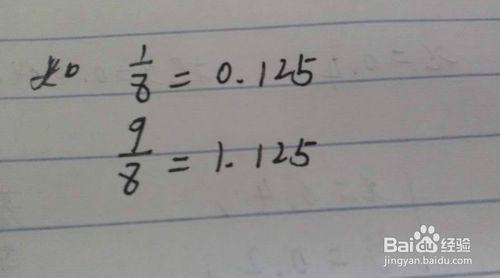 如 1/8 = 0.125
9/8 = 1.125
Baidu经验
jingyan.baidu.com